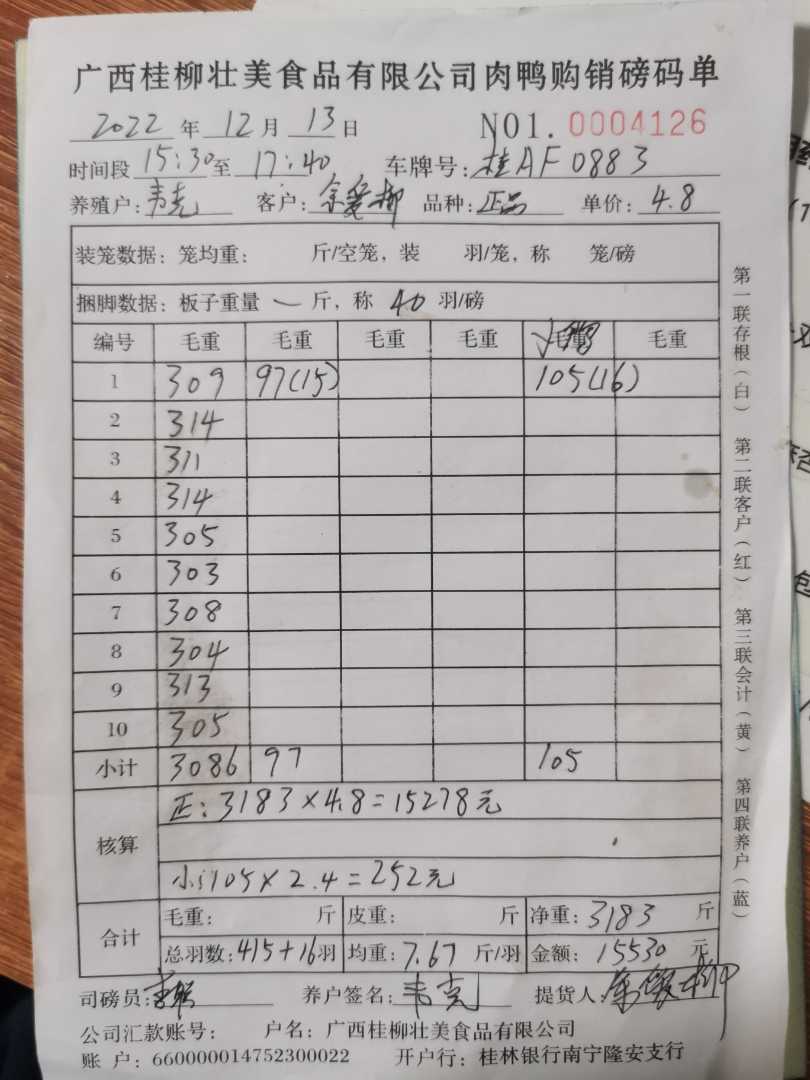 广西桂柳壮美食品有限公司肉鸭购销磅码单
2022年12月13日 NO1.0004126
时间段 15:30至 17:40 车牌号:桂AF0883
养殖户:韦克 客户:余爱柳 品种:正品 单价:4.8
装笼数据:笼均重: 斤/空笼,装 羽/笼,称 笼/磅
捆脚数据:板子重量 一 斤,称 40 羽/磅
编号 毛重 毛重 毛重 毛重 毛重
1 309 97(15) 105(16)
2 314
3 311
4 314
5 305
6 303
7 308
8 304
9 313
10 305
小计 3086 97 105
核算 正:3183×4.8=15278元
小:105×2.4=252元
合计 毛重: 斤 皮重: 斤 净重:3183 斤
总羽数:415+16羽 均重:7.67 斤/羽 金额:15530元
司磅员: 养户签名:韦克 提货人:余爱柳
公司汇款账号: 户名:广西桂柳壮美食品有限公司
账 户:660000014752300022 开户行:桂林银行南宁隆安支行
第一联存根(白) 第二联客户(红) 第三联会计(黄) 第四联养户(蓝)